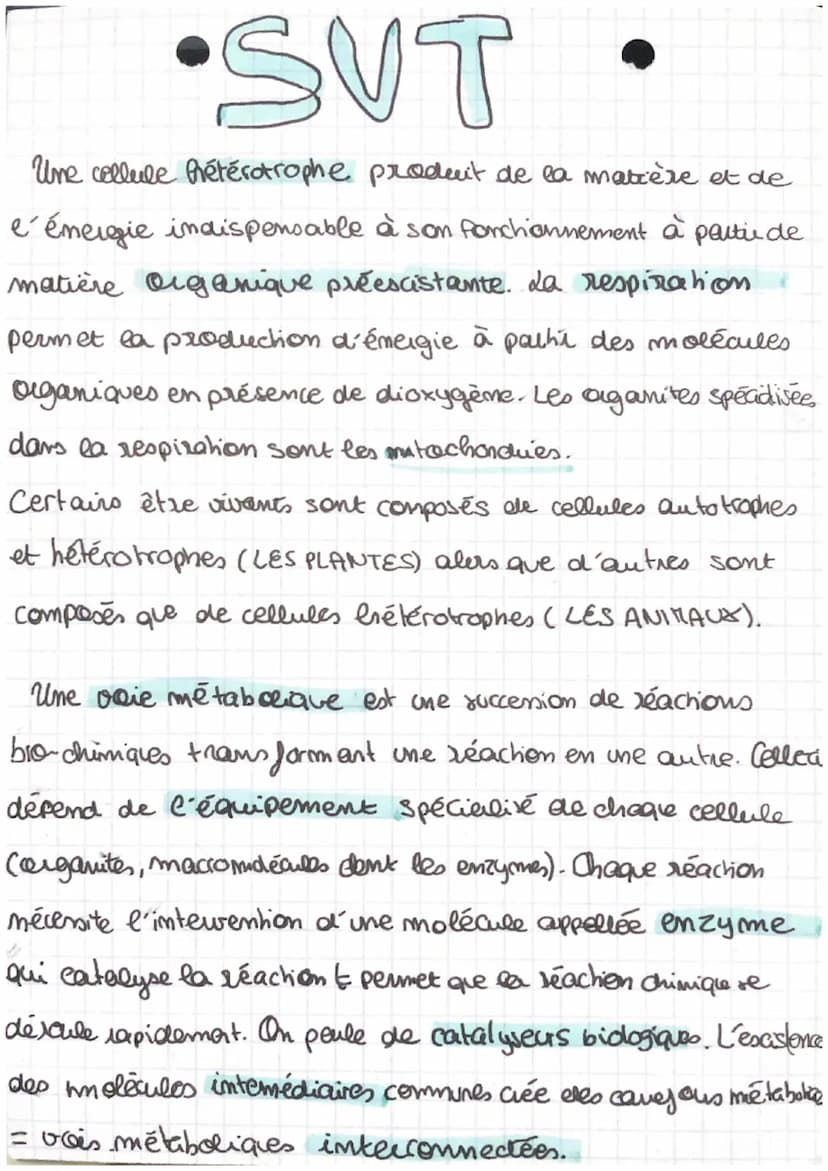 SVT
Une cellule hétérotrophe produit de la matière et de
l'énergie indispensable à son fonctionnement à partir de
matière organique préexistante. La respiration
permet la production d'énergie à partir des molécules
organiques en présence de dioxygène. Les organites spécialisées
dans la respiration sont les mitochondries.
Certains être vivants sont composés de cellules autotrophes
et hétérotrophes (LES PLANTES) alors que d'autres sont
composés que de cellules hétérotrophes (LES ANIMAUX).
Une voie métabolique est une succession de réactions
bio-chimiques transformant une réaction en une autre. Celleci
dépend de l'équipement spécialisé de chaque cellule
(organites, macromolécules dont les enzymes). Chaque réaction
nécessite l'intervention d'une molécule appellée enzyme
qui catalyse la réaction & permet que la réaction chimique se
déroule rapidement. On parle de catalyseurs biologiques. L'existence
des molécules intemédiaires communes crée des carrefours métabolique
= voies métaboliques interconnectées.